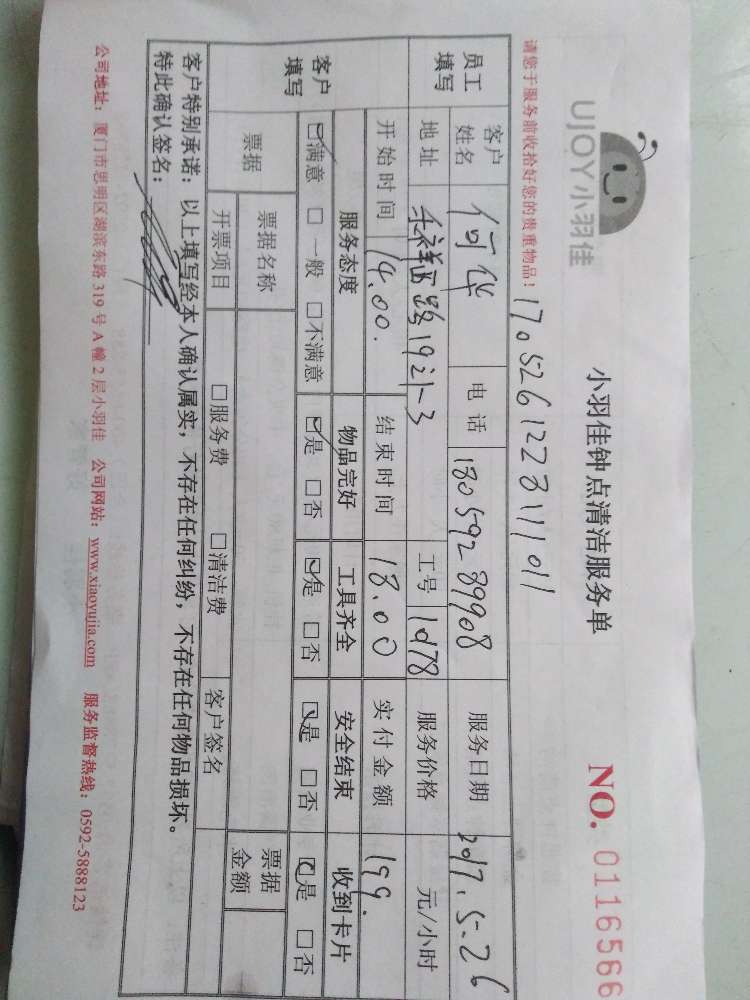 UJOY小羽佳
小羽佳钟点清洁服务单
NO. 0116566
请您于服务前收拾好您的贵重物品！
1705261228111011
员工填写
客户姓名 何华 电话 18059289908 服务日期 2017.5.26
地址 乐祥西路1921-3 工号 1078 服务价格 元/小时
开始时间 14.00. 结束时间 18.00 实付金额 199.
客户填写
服务态度 物品完好 工具齐全 安全结束 收到卡片
☑满意 □一般 □不满意 ☑是 □否 ☑是 □否 ☑是 □否 ☑是 □否
票据 票据名称 票据金额
开票项目 □服务费 □清洁费 客户签名
客户特别承诺：以上填写经本人确认属实，不存在任何纠纷，不存在任何物品损坏。
特此确认签名：
公司地址：厦门市思明区湖滨东路319号A幢2层小羽佳 公司网站：www.xiaoyujia.com 服务监督热线：0592-5888123